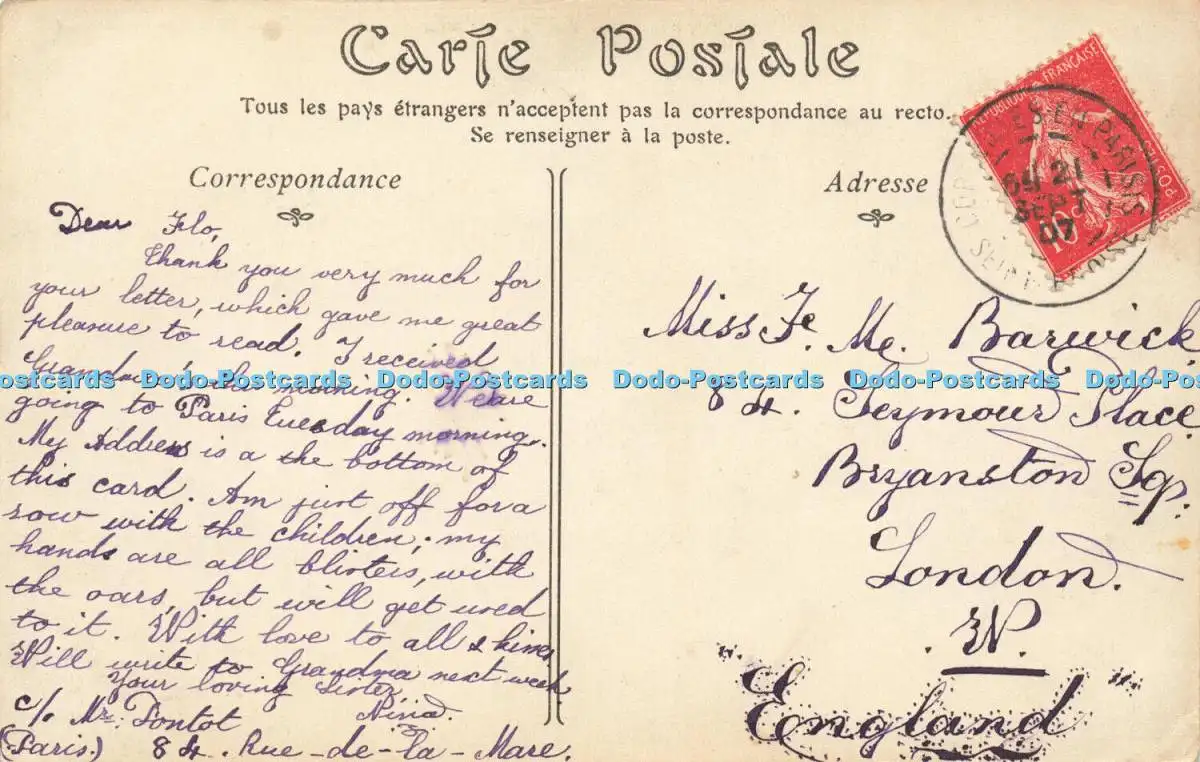 Carte Postale
Tous les pays étrangers n'acceptent pas la correspondance au recto.
Se renseigner à la poste.
Correspondance
Dear Flo,
Thank you very much for
your letter, which gave me great
pleasure to read. I received
Grandma's this morning. We are
going to Paris Tuesday morning.
My Address is a the bottom of
this card. Am just off for a
row with the children; my
hands are all blisters, with
the oars, but will get used
to it. With love to all &
Will write to Grandma next week
Your loving Sister
Nina.
c/o Mr. Pontot
(Paris.) 84. Rue-de-la-Mare.
Adresse
Miss F. M. Barwick
84. Seymour Place
Bryanston Sq.
London.
.W.
"England"
REPUBLIQUE FRANÇAISE
POSTES
10c
EN PARISIS
21
SEPT
07
Dodo-Postcards Dodo-Postcards Dodo-Postcards Dodo-Postcards Dodo-Postcards Dodo-Postcards